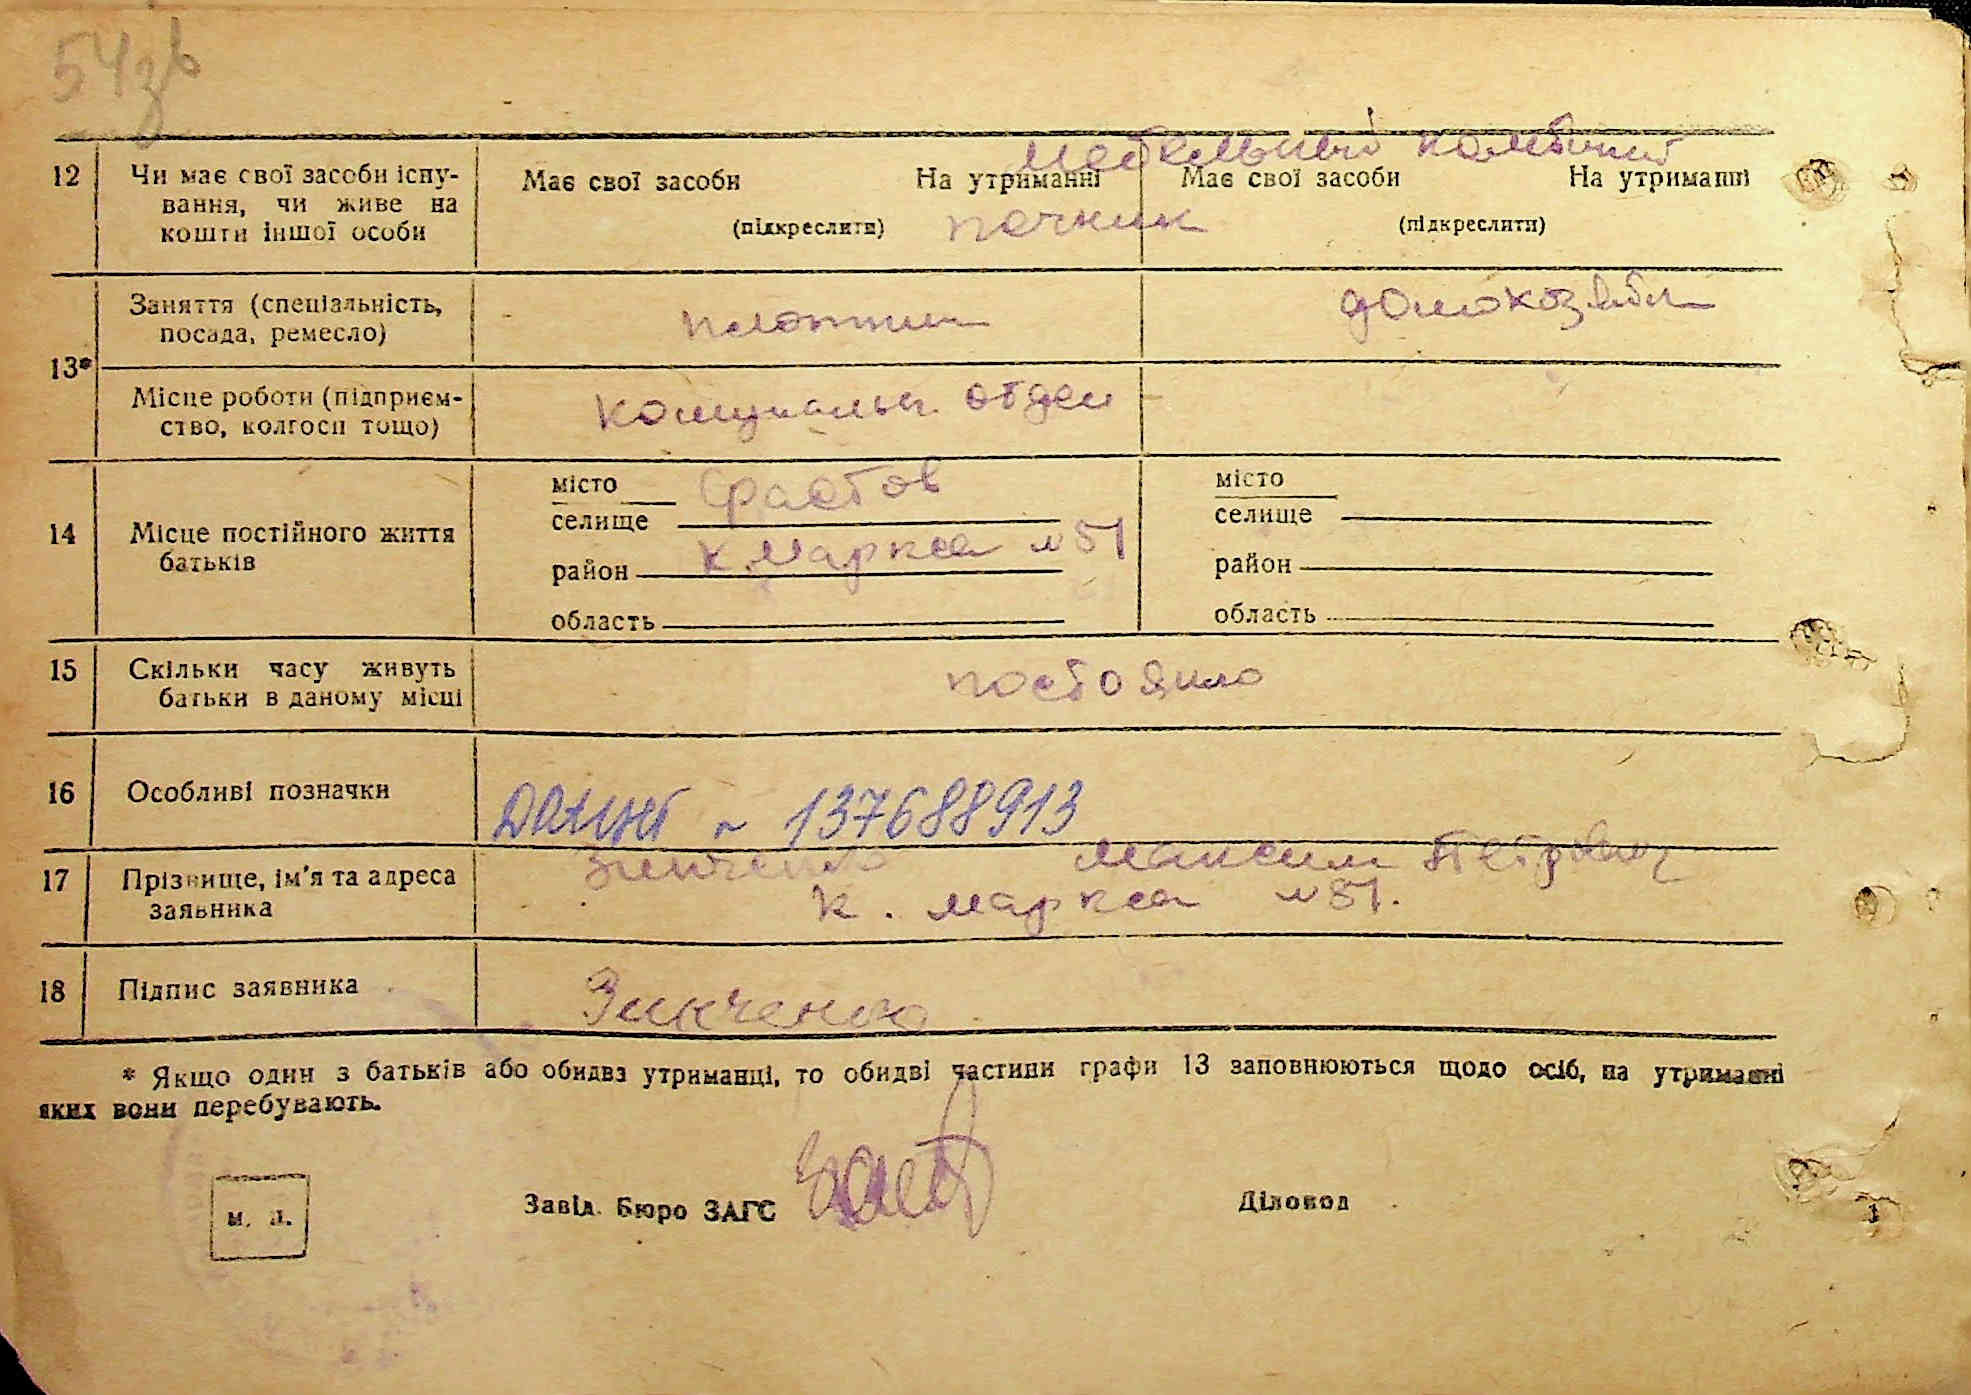 54зв
Мебельный комбинат
12 Чи має свої засоби існу-
вання, чи живе на
кошти іншої особи
Має свої засоби На утриманні
(підкреслити)
печник
Має свої засоби На утриманні
(підкреслити)
13* Заняття (спеціальність,
посада, ремесло)
плотник
домохоз.
Місце роботи (підприєм-
ство, колгосп тощо)
Комунальн. отдел
14 Місце постійного життя
батьків
місто Фастов
селище
район К. Маркса № 51
область
місто
селище
район
область
15 Скільки часу живуть
батьки в даному місці
постоянно
16 Особливі позначки
137688913
17 Прізвище, ім'я та адреса
заявника
Зинченко Максим Петрович
К. Маркса № 51.
18 Підпис заявника
Зинченко
* Якщо один з батьків або обидва утриманці, то обидві частини графи 13 заповнюються щодо осіб, на утриманні
яких вони перебувають.
М. П.
Завід. Бюро ЗАГС
Діловод